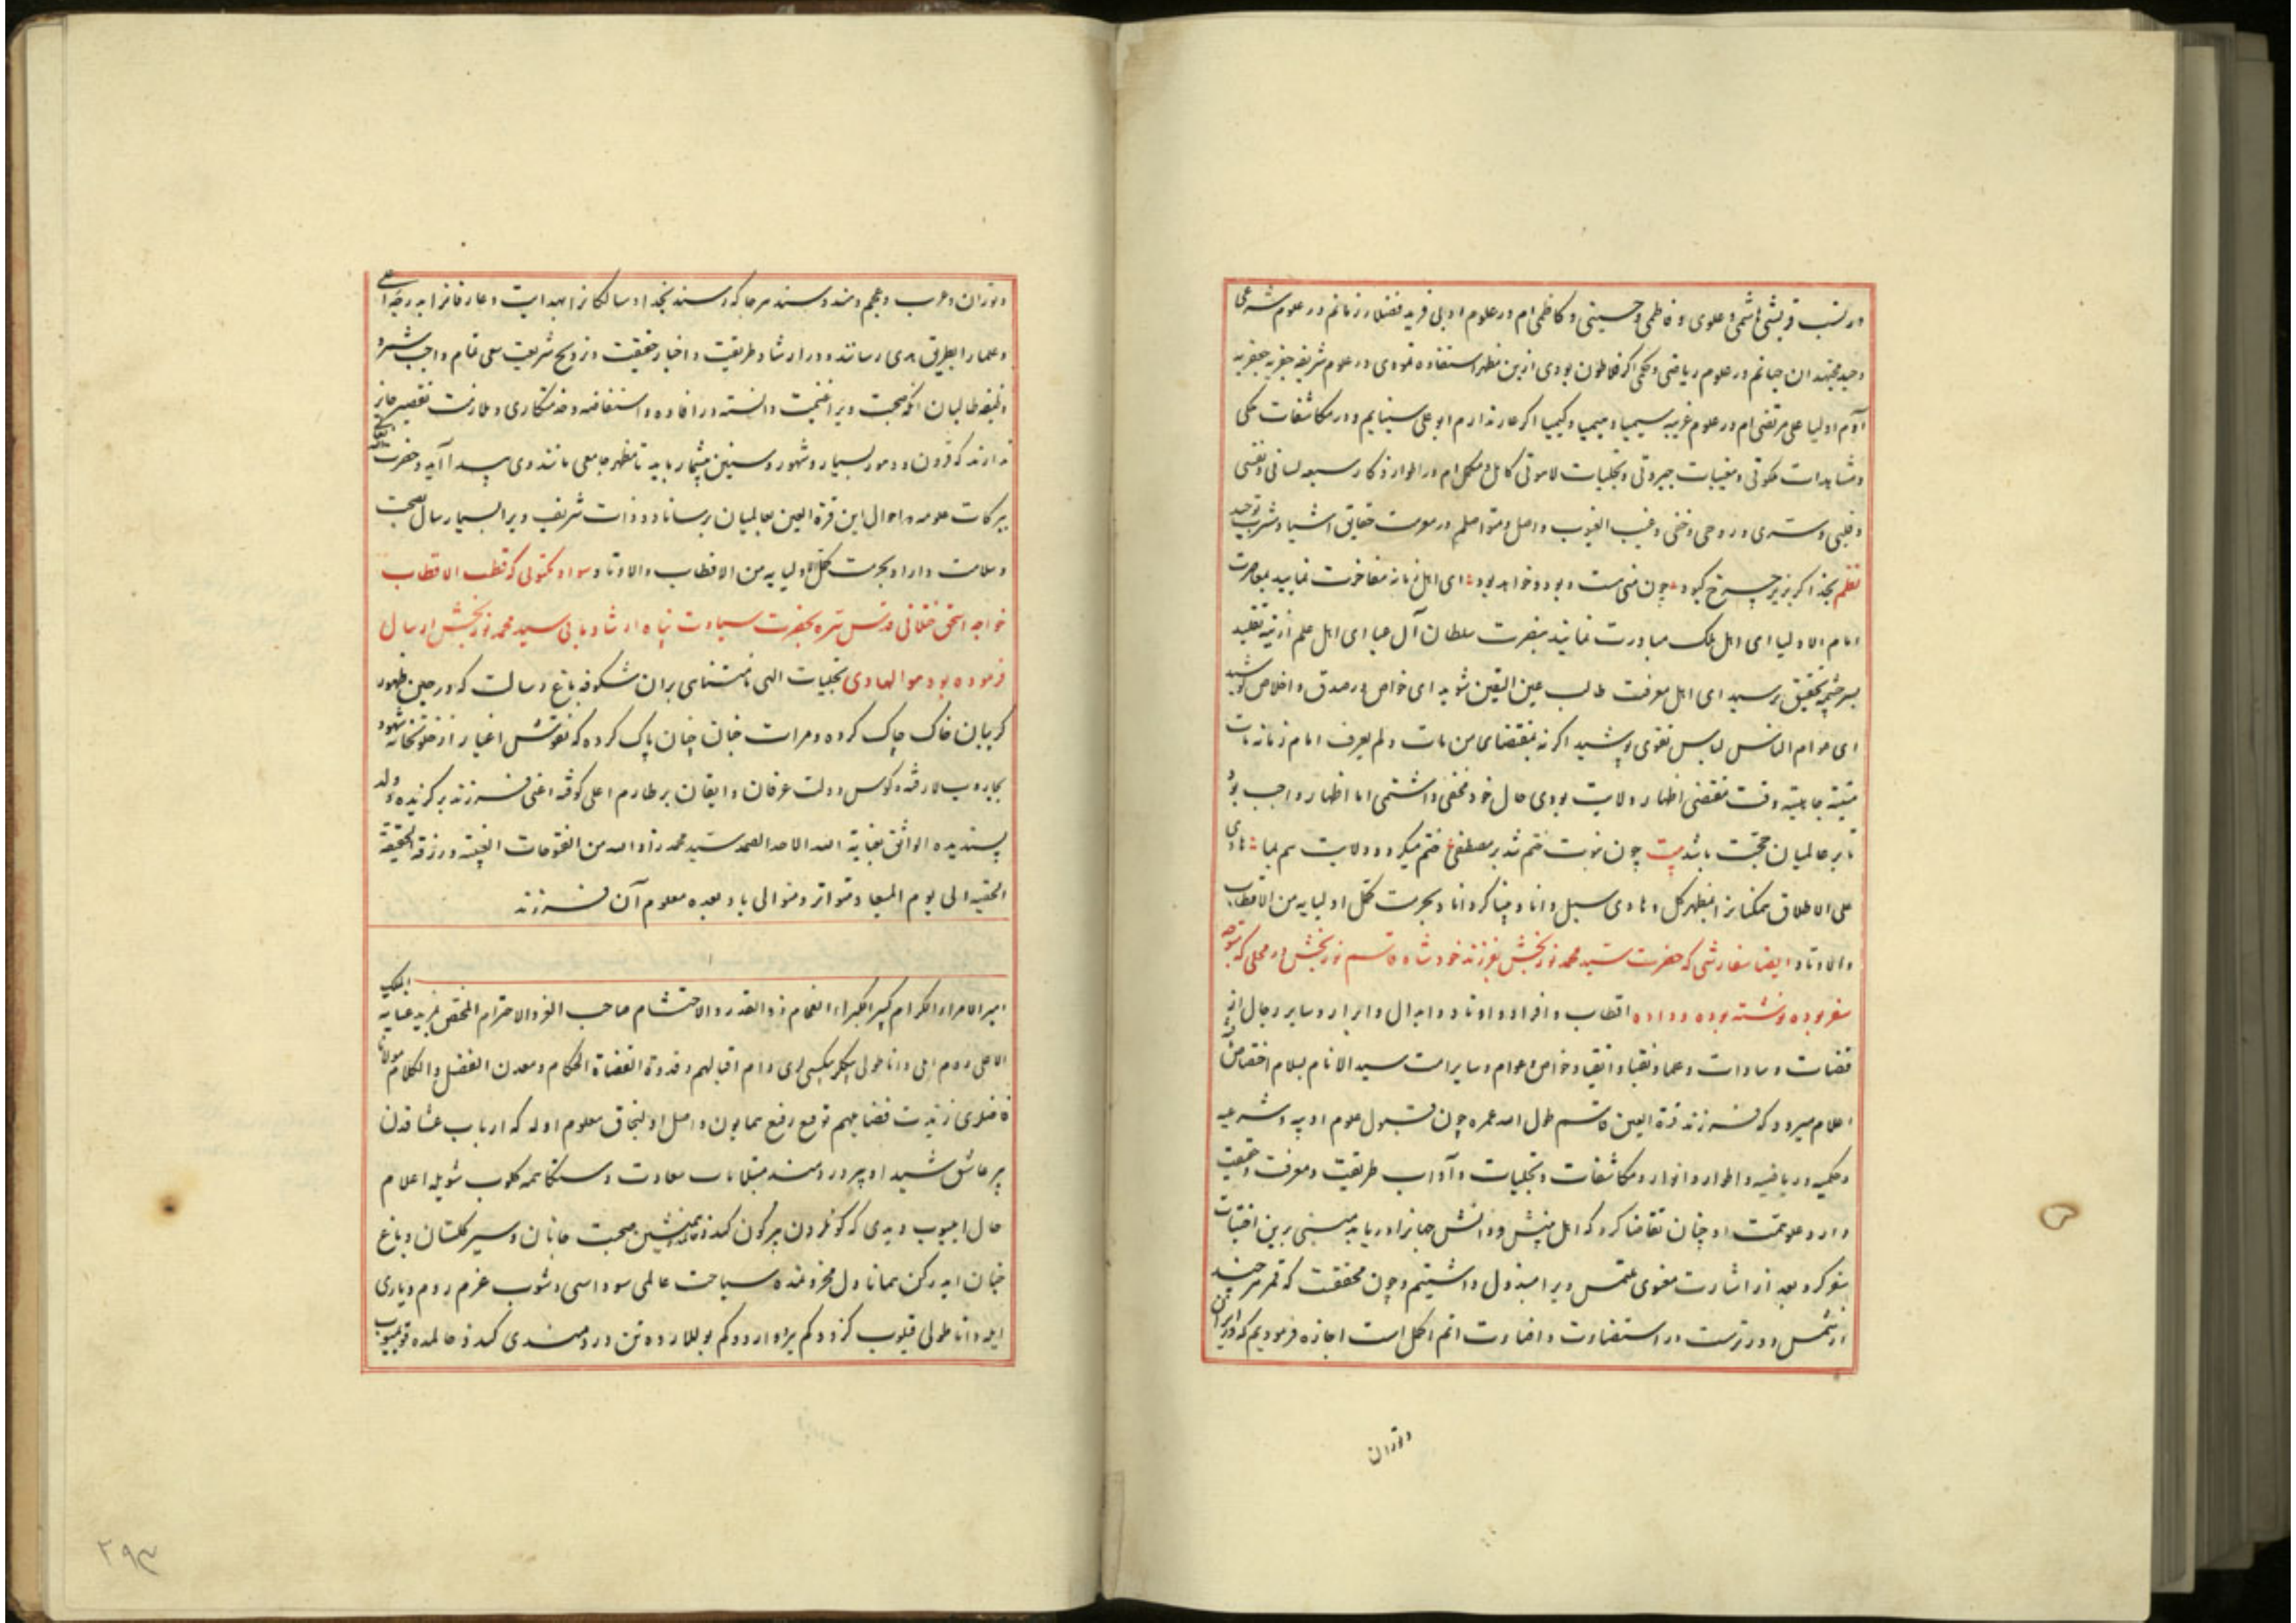 در نسب قریشی و هاشمی و علوی و فاطمی و حسینی و کاظمی ام در علوم اولی فرید فضلاء زمانم در علوم شرعی
وحید مجتهدان جهانم در علوم ریاضی و حکمی اگر فلاطون بودی ازین مظهر استفاده نمودی در علوم شریفه جفریه
آدم اولیا علی مرتضی ام در علوم غریبه سیمیا و هیمیا و کیمیا اگر عار ندارم ابو علی سینایم و در مکاشفات ملکی
و مشاهدات ملکوتی و مغیبات جبروتی و تجلیات لاهوتی کامل و مکمل ام در اطوار اذکار سبعه لسانی و نفسی
و قلبی و سری و روحی و خفی و غیب الغیوب واصل و متواصلم در معرفت حقایق اشیا و مشرب توحید
نظم بخدا کر بزیر چرخ کبود چون منی هست و بود و خواهد بود ای اهل زمانه مفاخرت نمایید بمعاصرت
امام الاولیا ای اهل ملک مبادرت نمایید بنصرت سلطان آل عبا ای اهل علم از تیه تقلید
بسرچشمه تحقیق برسید ای اهل معرفت طالب عین الیقین شوید ای خواص در صدق و اخلاص کوشید
ای عوام الناس لباس تقوی پوشید اگر نه بمقتضای من مات و لم یعرف امام زمانه مات
میتة جاهلیة وقت مقتضی اظهار ولایت بودی حال خود مخفی داشتمی اما اظهار واجب بود
تا بر عالمیان حجت باشد بیت چون نبوت ختم شد بر مصطفی ختم میکردد ولایت هم بما هادی
علی الاطلاق همکنانرا بمظهر کل و هادی سبل دانا و بینا کرداناد بحرمت کمل اولیایه من الاقطاب
والاوتاد ایضا سفارشی که حضرت سید محمد نوربخش بفرزند خود شاه قاسم نوربخش در محلی که متوجه
سفر بوده نوشته بوده و داده اقطاب و افراد و اوتاد و ابدال و ابرار و سایر رجال الله
قضات و سادات و علما و نقبا و اتقیا و خواص و عوام و سایر امت سید الانام بسلام اختصاص
اعلام میرود که فرزند قرة العین قاسم طول الله عمره چون قبول علوم ادبیه و شرعیه
و حکمیه و ریاضیه و اطوار و انوار و مکاشفات و تجلیات و آداب طریقت و معرفت و حقیقت
دارد و علو همت او چنان تقاضا کرد که اهل بینش و دانش جهانرا دریابد مبنی برین اختیار
سفر کرد و بعد از اشارت معنوی ملتمس ویرا مبذول داشتیم و چون محققت که قمر هر چند
از شمس دورترست در استضاءت و اضاءت اتم و اکمل است اجازه فرمودیم که در ایران
و توران
و توران و عرب و عجم و هند و سند هر جا که رسند بخدا و سالکانرا بهدایت و عارفانرا بدرجه اعلی
و علما را بطریق هدی رسانند و در ارشاد طریقت و اخبار حقیقت و ترویج شریعت سعی تمام واجب شمرد
وظیفه طالبان آنکه صحبت ویرا غنیمت دانسته در افاده و استفاضه و خدمتکاری و ملازمت تقصیر جایز
ندارند که قرون و دهور بسیار و شهور و سنین بیشمار باید تا مظهر جامعی مانند وی پیدا آید و حضرت
برکات علوم و احوال این قرة العین بعالمیان برساناد و ذات شریف ویرا بسیار سال بصحت
و سلامت داراد بحرمت کمل اولیایه من الاقطاب والاوتاد سواد مکتوبی که قطب الاقطاب
خواجه اسحق ختلانی قدس سره بحضرت سیادت پناه ارشاد مابی سید محمد نوربخش ارسال
فرموده بود هو الهادی تجلیات الهی نامتناهی بران شکوفه باغ رسالت که در حین ظهور
کریبان خاک چاک کرده و مرات جنان چنان پاک کرده که نقوش اغیار از خلوتخانه شهود
بجاروب لا رفته و کوس دولت عرفان و ایقان بر طارم اعلی کوفته اعنی فرزند برکزیده و ولد
پسندیده الواثق بعنایة الله الاحد الصمد سید محمد زاد الله من الفتوحات الغیبیة و رزقه الحقیقة
الحقیة الی یوم المیعاد متواتر و متوالی باد بعده معلوم آن فرزند
امیر الامراء الکرام کبیر الکبراء الفخام ذو القدر والاحتشام صاحب العز والاحترام المختص بمزید عنایة الملک
الاعلی روم ایلی و اناطولی بکلربکیلری دام اقبالهم و قدوة القضاة والحکام معدن الفضل والکلام مولانا
قاضلری زیدت فضایلهم توقیع رفیع همایون واصل اولیجاق معلوم اوله که ارباب عشاقدن
بر عاشق شیدا و پر دردمند مبتلا باب سعادت دستکاهمه کلوب شویله اعلام
حال ایدی که کوفردون بر کون همنشین صحبت جانان و سیر کلستان و باغ
جنان ایدرکن همانا دل محزونمده سیاحت عالمی سوداسی دوشوب عزم روم دیاری